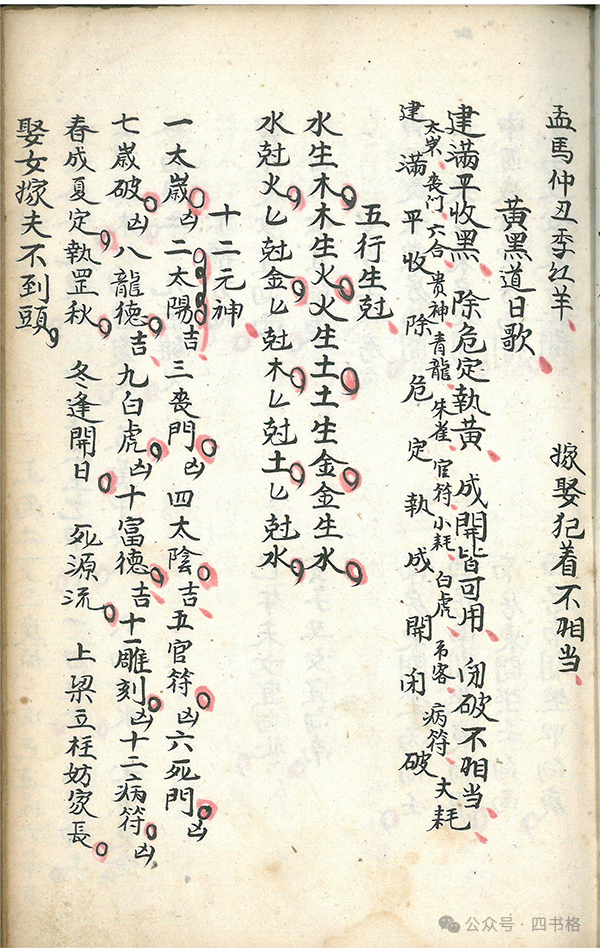 孟馬仲丑季紅羊 嫁娶犯着不相当
黃黑道日歌
建滿平收黑 除危定執黃 成開皆可用 闭破不相当
太岁 喪门 六合 贵神 青龍 朱雀 官符 小耗 白虎 吊客 病符 大耗
建滿平收除危定執成開闭破
五行生尅
水生木木生火火生土土生金金生水
水尅火匕尅金匕尅木匕尅土匕尅水
十二元神
一太歲凶二太陽吉三喪門凶四太陰吉五官符凶六死門凶
七歲破凶八龍德吉九白虎凶十富德吉十一雕刻凶十二病符凶
春成夏定執罡秋 冬逢開日死源流 上梁立柱妨家長
娶女嫁夫不到頭
公众号·四书格